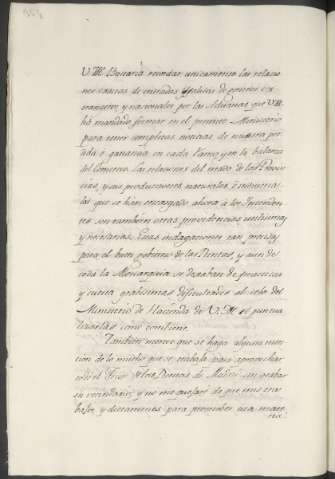 V.M. Bastaría recordar unicamente las relacio-
nes exactas de entradas y salidas de generos ex-
trangeros, y nacionales por las Aduanas, que V.M.
há mandado formar en el presente Ministerio
para tener completas noticias de nuestra per-
dida ó ganancia en cada Ramo, y en la balanza
del Comercio. Las relaciones del estado de las Provin-
cias, y sus producciones naturales, é industria-
les que se han encargado ahora á los Intenden-
tes son tambien otras providencias utilisimas,
y necesarias. Estas indagaciones tan precisas
para el buen gobierno de las Rentas, y aun de
toda la Monarquía se dexaban de practicar
y cuesta grandisimas dificultades al celo del
Ministerio de Hacienda de V.M. el puntua-
lizarlas como conviene.
Tambien merece que se haga alguna men-
cion de lo mucho que se trabaja para
las Rentas de Madrid sin grabar
su vecindario, y no me quexaré de que mis tra-
bajos, y dictamenes para promover esta mate-